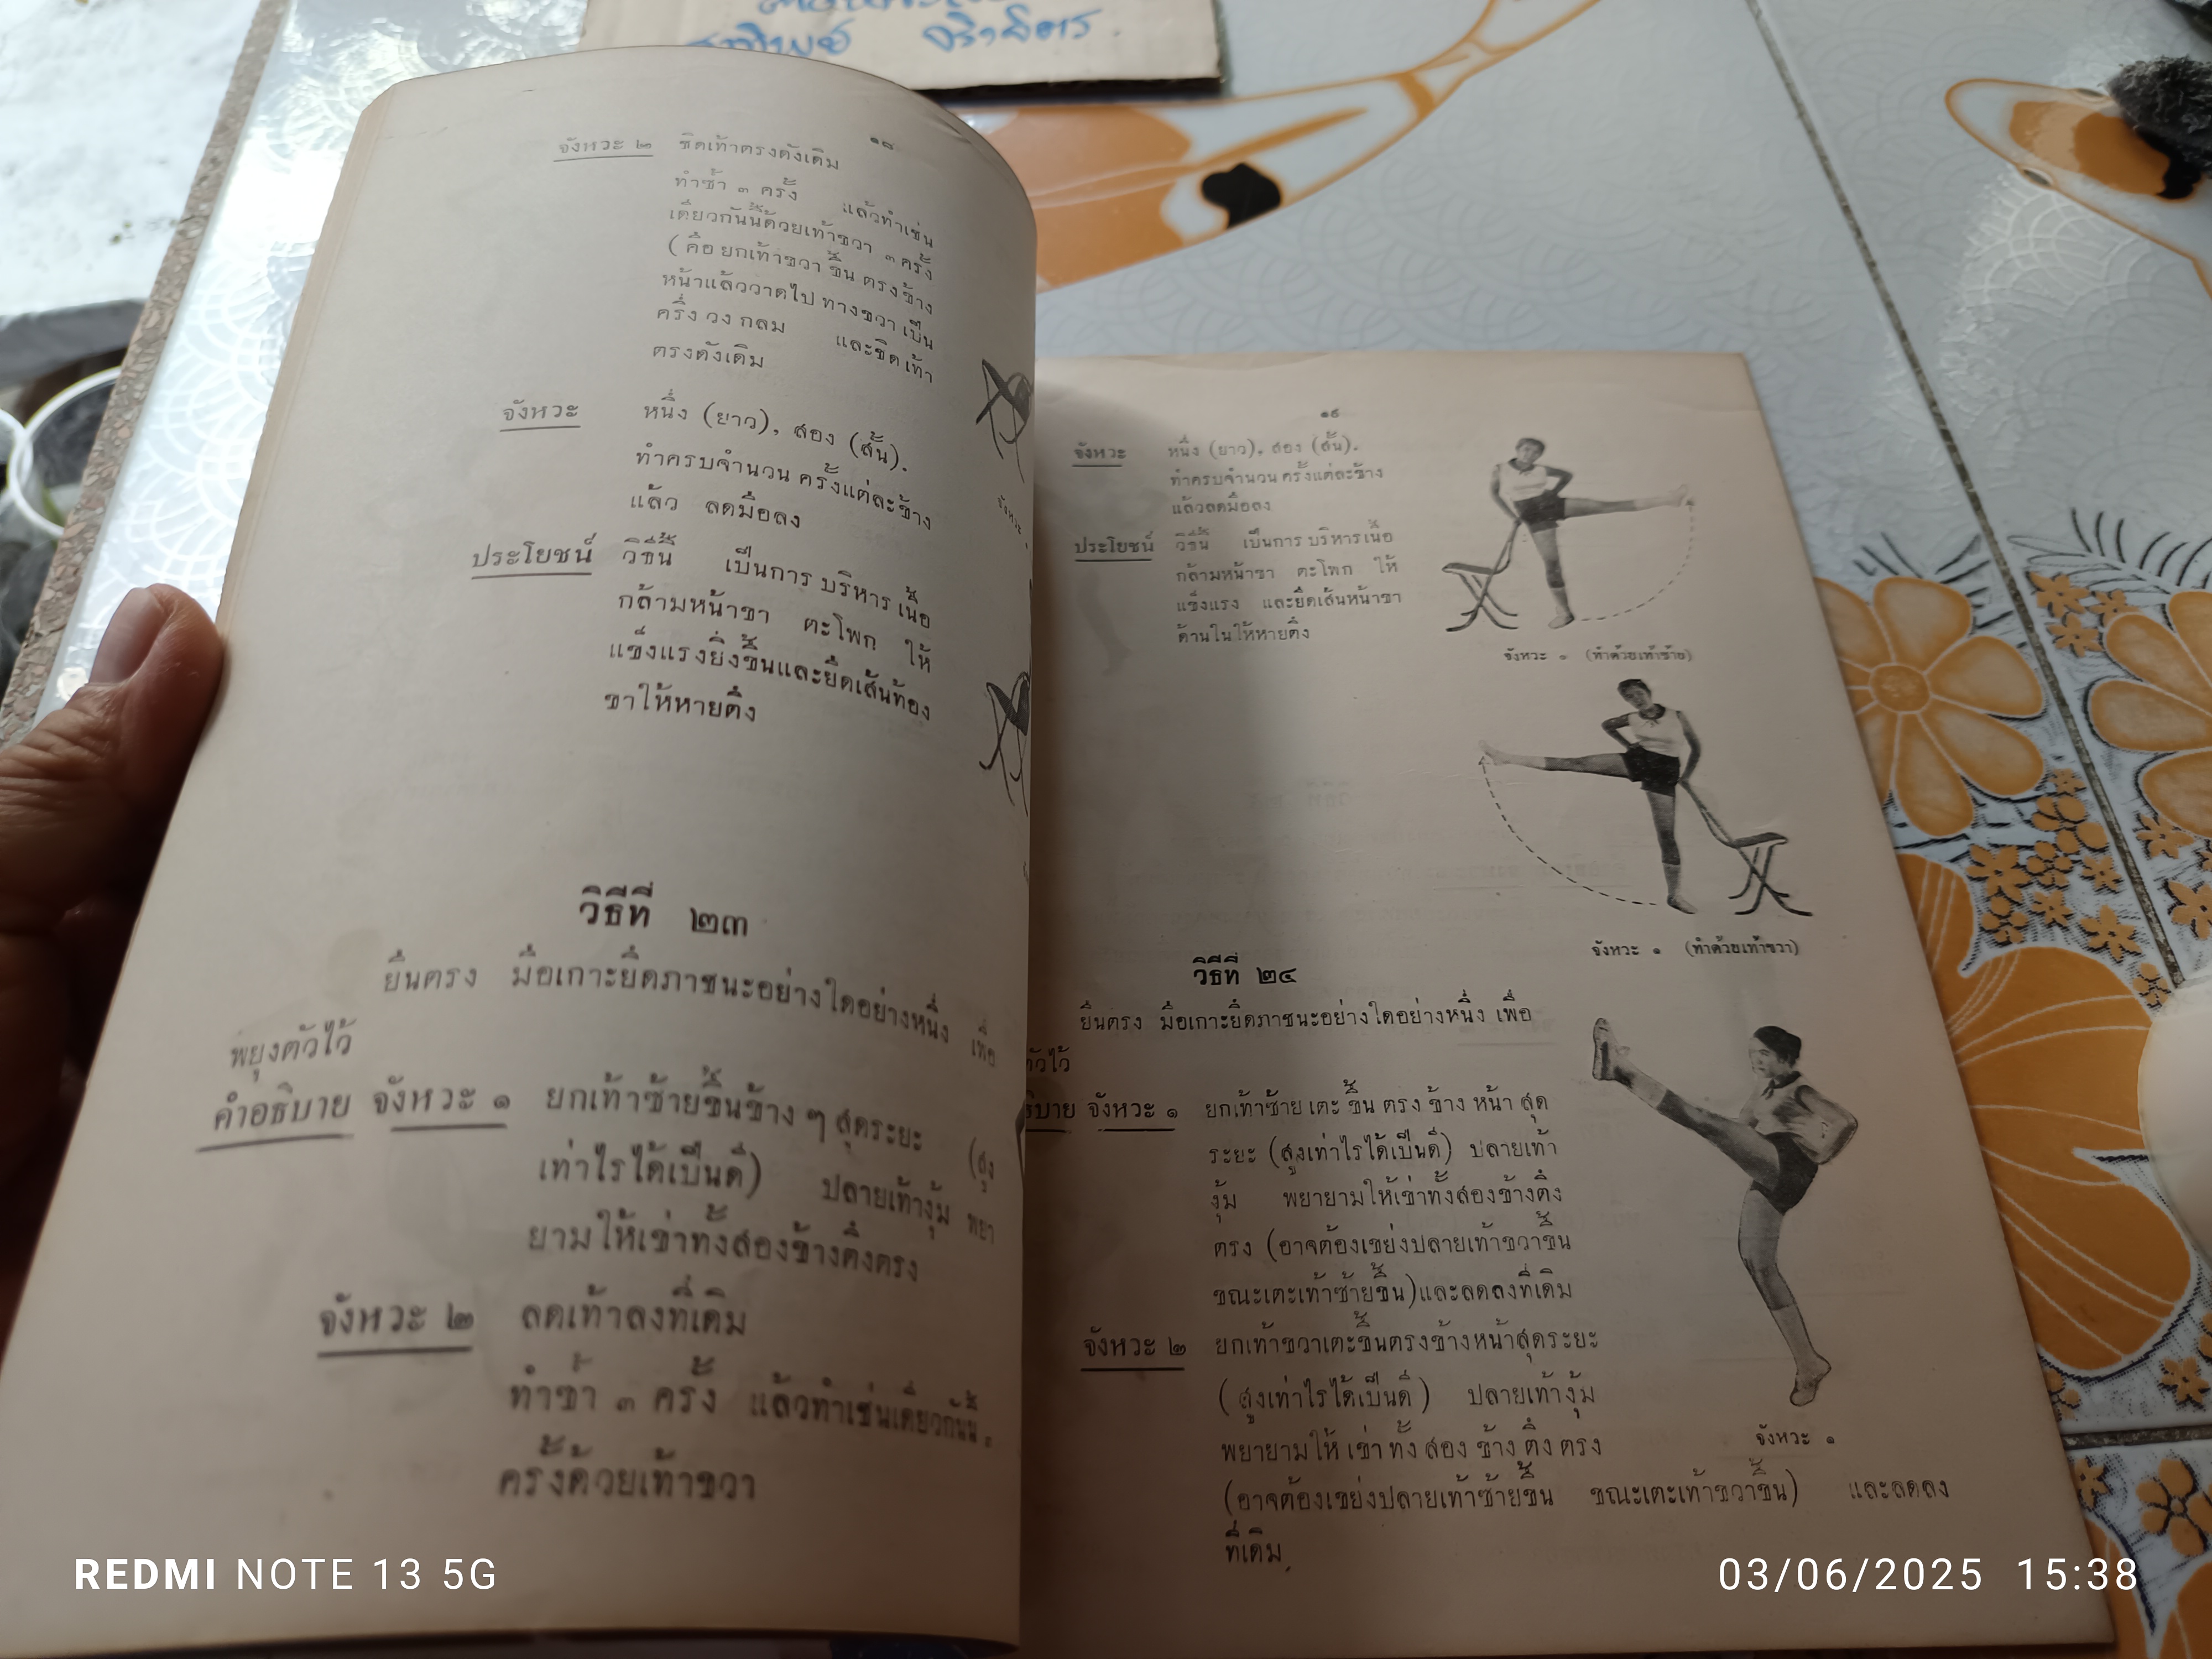 จังหวะ ๒ ชิดเท้าตรงดังเดิม
ทำซ้ำ ๓ ครั้ง แล้วทำเช่น
เดียวกันนี้ด้วยเท้าขวา ๓ ครั้ง
(คือยกเท้าขวา ขึ้น ตรงข้าง
หน้าแล้ววาดไป ทางขวา เป็น
ครึ่ง วง กลม และชิด เท้า
ตรงดังเดิม
จังหวะ หนึ่ง (ยาว), สอง (สั้น).
ทำครบจำนวน ครั้งแต่ละข้าง
แล้ว ลดมือลง
ประโยชน์ วิธีนี้ เป็นการ บริหาร เนื้อ
กล้ามหน้าขา ตะโพก ให้
แข็งแรงยิ่งขึ้นและยืดเส้นท้อง
ขาให้หายตึง
วิธีที่ ๒๓
ยืนตรง มือเกาะยึดภาชนะอย่างใดอย่างหนึ่ง เพื่อ
พยุงตัวไว้
คำอธิบาย จังหวะ ๑ ยกเท้าซ้ายขึ้นข้าง ๆ สุดระยะ (สูง
เท่าไรได้เป็นดี) ปลายเท้างุ้ม พยา
ยามให้เข่าทั้งสองข้างตึงตรง
จังหวะ ๒ ลดเท้าลงที่เดิม
ทำซ้ำ ๓ ครั้ง แล้วทำเช่นเดียวกันนี้
ครั้งด้วยเท้าขวา
๑๙
จังหวะ หนึ่ง (ยาว), สอง (สั้น).
ทำครบจำนวน ครั้งแต่ละข้าง
แล้วลดมือลง
ประโยชน์ วิธีนี้ เป็นการ บริหารเนื้อ
กล้ามหน้าขา ตะโพก ให้
แข็งแรง และยืดเส้นหน้าขา
ด้านในให้หายตึง
จังหวะ ๑ (ทำด้วยเท้าซ้าย)
จังหวะ ๑ (ทำด้วยเท้าขวา)
วิธีที่ ๒๔
ยืนตรง มือเกาะยึดภาชนะอย่างใดอย่างหนึ่ง เพื่อ
ตัวไว้
ธิบาย จังหวะ ๑ ยกเท้าซ้าย เตะ ขึ้น ตรง ข้าง หน้า สุด
ระยะ (สูงเท่าไรได้เป็นดี) ปลายเท้า
งุ้ม พยายามให้เข่าทั้งสองข้างตึง
ตรง (อาจต้องเขย่งปลายเท้าขวาขึ้น
ขณะเตะเท้าซ้ายขึ้น)และลดลงที่เดิม
จังหวะ ๒ ยกเท้าขวาเตะขึ้นตรงข้างหน้าสุดระยะ
(สูงเท่าไรได้เป็นดี) ปลายเท้างุ้ม
พยายามให้ เข่า ทั้ง สอง ข้าง ตึง ตรง
(อาจต้องเขย่งปลายเท้าซ้ายขึ้น ขณะเตะเท้าขวาขึ้น) และลดลง
ที่เดิม
จังหวะ ๑
REDMI NOTE 13 5G
03/06/2025 15:38